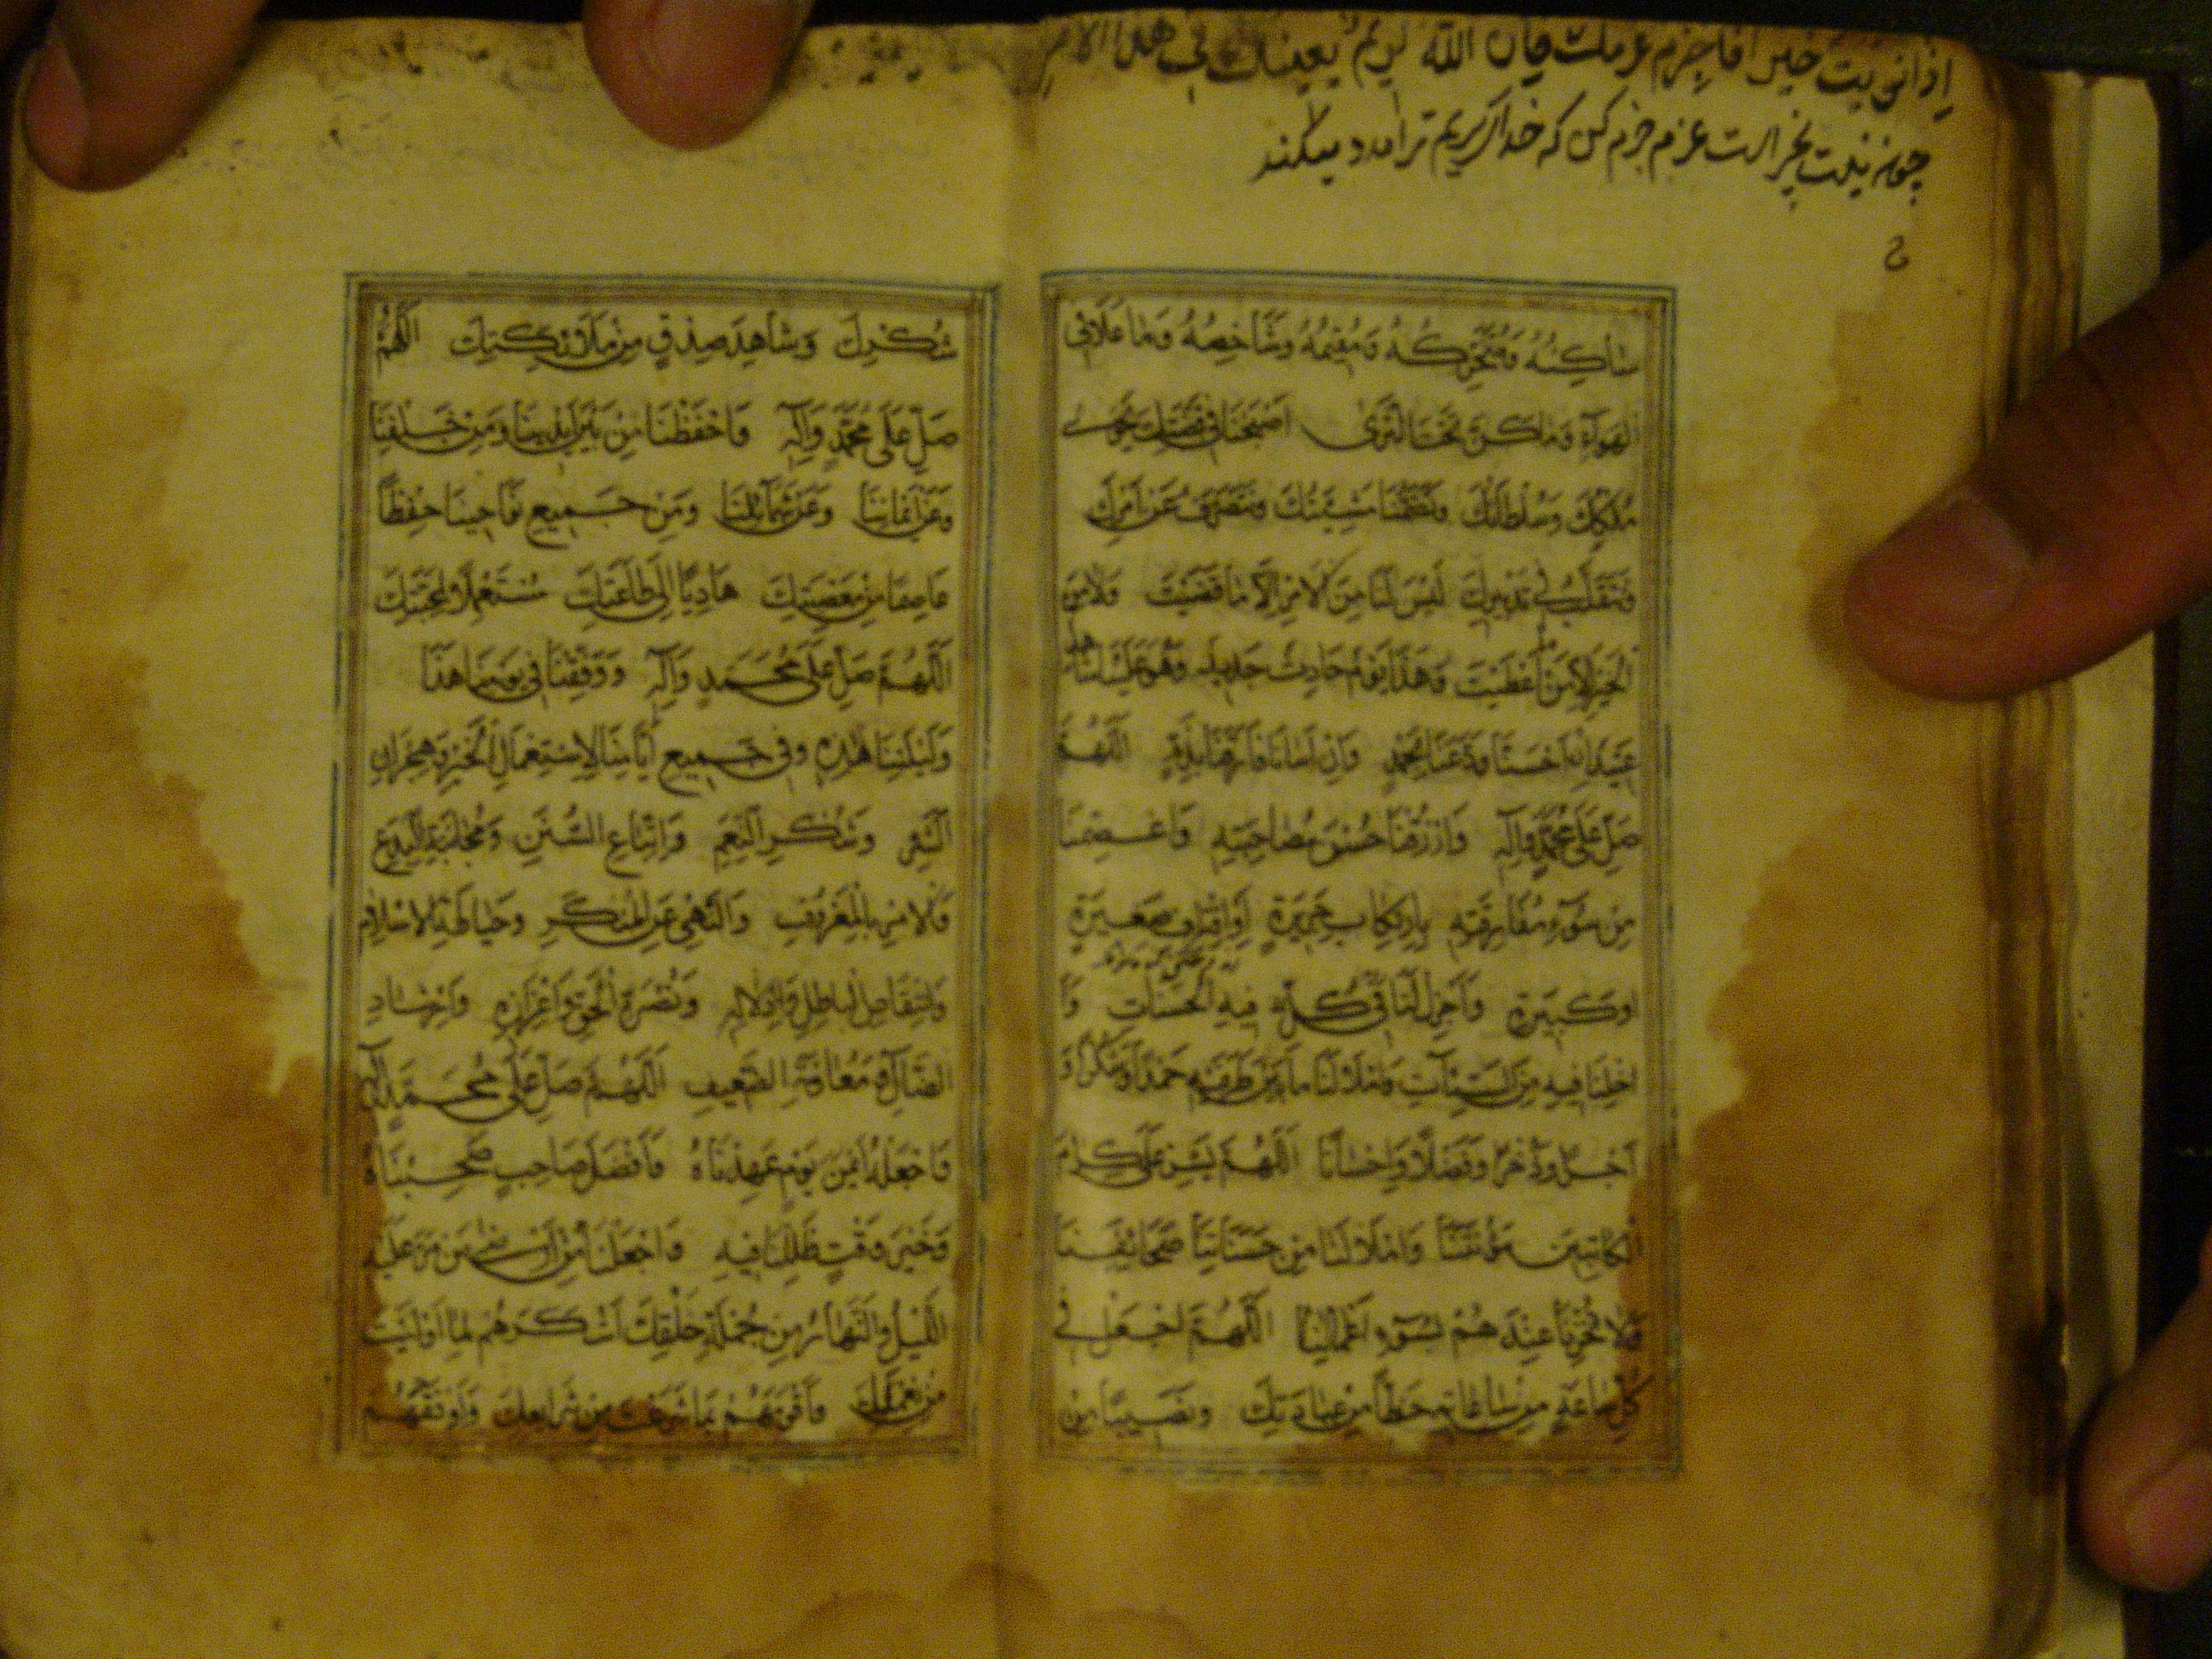 إذا نويت خيرا فاجزم عزمك فإن الله كريم يعينك في هذا الامر
چونه نیت بخیر است عزم جزم کن که خدای کریم ترا مدد میکند
سَاكِنُهُ وَمُتَحَرِّكُهُ وَمُقِيمُهُ وَشَاخِصُهُ وَمَا عَلَا فِي
الْهَوَآءِ وَمَا كَنَّ تَحْتَ الثَّرَى اَصْبَحْنَا فِي قَبْضَتِكَ يَحْوِينَا
مُلْكُكَ وَسُلْطَانُكَ وَتَضُمُّنَا مَشِيَّتُكَ وَنَتَصَرَّفُ عَنْ اَمْرِكَ
وَنَتَقَلَّبُ فِي تَدْبِيرِكَ لَيْسَ لَنَا مِنَ الْاَمْرِ اِلَّا مَا قَضَيْتَ وَلَا مِنَ
الْخَيْرِ اِلَّا مَا اَعْطَيْتَ وَهَذَا يَوْمٌ حَادِثٌ جَدِيدٌ وَهُوَ عَلَيْنَا شَاهِدٌ
عَتِيدٌ اِنْ اَحْسَنَّا وَدَّعَنَا بِحَمْدٍ وَاِنْ اَسَأْنَا فَارَقَنَا بِذَمٍّ اَللّٰهُمَّ
صَلِّ عَلَى مُحَمَّدٍ وَآلِهِ وَارْزُقْنَا حُسْنَ مُصَاحَبَتِهِ وَاعْصِمْنَا
مِنْ سُوٓءِ مُفَارَقَتِهِ بِارْتِكَابِ جَرِيرَةٍ اَوِ اقْتِرَافِ صَغِيرَةٍ
اَوْ كَبِيرَةٍ وَاَجْزِلْ لَنَا فِي كُلِّهِ فِيهِ الْحَسَنَاتِ وَاَ
اَخْلِنَا فِيهِ مِنَ السَّيِّئَاتِ وَامْلَأْ لَنَا مَا بَيْنَ طَرَفَيْهِ حَمْدًا وَشُكْرًا وَ
اَجْرًا وَذُخْرًا وَفَضْلًا وَاِحْسَانًا اَللّٰهُمَّ يَسِّرْ عَلَى الْكِرَامِ
الْكَاتِبِينَ مَؤُنَتَنَا وَامْلَأْ لَنَا مِنْ حَسَنَاتِنَا صَحَائِفَنَا
وَلَا تُخْزِنَا عِنْدَهُمْ بِسُوٓءِ اَعْمَالِنَا اَللّٰهُمَّ اجْعَلْ لَنَا فِي
كُلِّ سَاعَةٍ مِنْ سَاعَاتِهِ حَظًّا مِنْ عِبَادَتِكَ وَنَصِيبًا مِنْ
شُكْرِكَ وَشَاهِدَ صِدْقٍ مِنْ مَلَائِكَتِكَ اَللّٰهُمَّ
صَلِّ عَلَى مُحَمَّدٍ وَآلِهِ وَاحْفَظْنَا مِنْ بَيْنِ اَيْدِينَا وَمِنْ خَلْفِنَا
وَعَنْ اَيْمَانِنَا وَعَنْ شَمَائِلِنَا وَمِنْ جَمِيعِ نَوَاحِينَا حِفْظًا
عَاصِمًا مِنْ مَعْصِيَتِكَ هَادِيًا اِلَى طَاعَتِكَ مُسْتَعْمِلًا لِمَحَبَّتِكَ
اَللّٰهُمَّ صَلِّ عَلَى مُحَمَّدٍ وَآلِهِ وَوَفِّقْنَا فِي يَوْمِنَا هَذَا
وَلَيْلَتِنَا هَذِهِ وَفِي جَمِيعِ اَيَّامِنَا لِاسْتِعْمَالِ الْخَيْرِ وَهِجْرَانِ
الشَّرِّ وَشُكْرِ النِّعَمِ وَاتِّبَاعِ السُّنَنِ وَمُجَانَبَةِ الْبِدَعِ
وَالْاَمْرِ بِالْمَعْرُوفِ وَالنَّهْيِ عَنِ الْمُنْكَرِ وَحِيَاطَةِ الْاِسْلَامِ
وَانْتِقَاصِ الْبَاطِلِ وَاِذْلَالِهِ وَنُصْرَةِ الْحَقِّ وَاِعْزَازِهِ وَاِرْشَادِ
الضَّالِّ وَمُعَاوَنَةِ الضَّعِيفِ اَللّٰهُمَّ صَلِّ عَلَى مُحَمَّدٍ وَآلِهِ
وَاجْعَلْهُ اَيْمَنَ يَوْمٍ عَهِدْنَاهُ وَاَفْضَلَ صَاحِبٍ صَحِبْنَاهُ
وَخَيْرَ وَقْتٍ ظَلِلْنَا فِيهِ وَاجْعَلْنَا مِنْ اَرْضَى مَنْ مَرَّ عَلَيْهِ
اللَّيْلُ وَالنَّهَارُ مِنْ جُمْلَةِ خَلْقِكَ اَشْكَرَهُمْ لِمَا اَوْلَيْتَ
مِنْ نِعَمِكَ وَاَقْوَمَهُمْ بِمَا شَرَعْتَ مِنْ شَرَايِعِكَ وَاَوْقَفَهُمْ